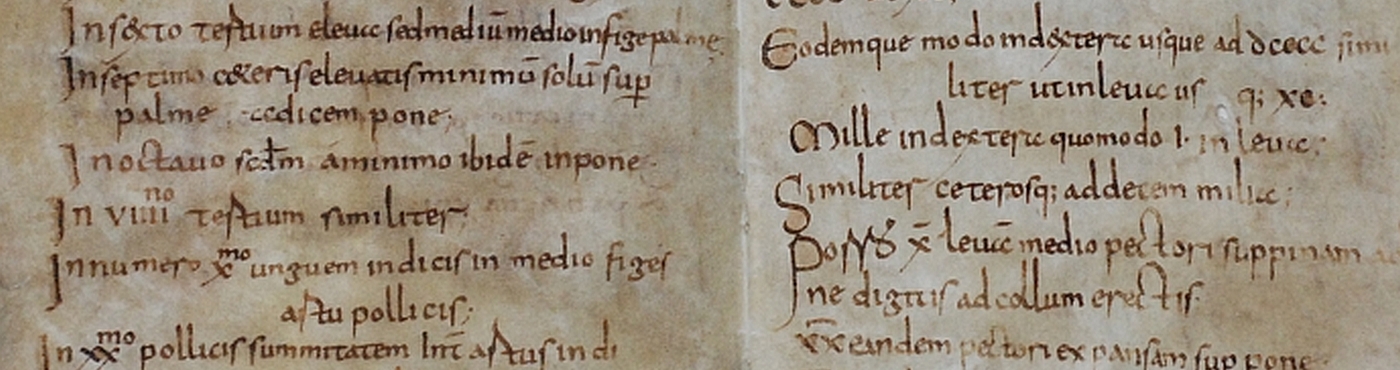 In sexto tertium eleua sed mediũ medio infige palme
In septimo ceteris eleuatis minimũ solũ sup
palme adicem pone;
In octauo scdm a minimo ibidẽ inpone
In viiii no tertium similiter;
In numero x̃ mo unguem indicis in medio figes
artu pollicis;
In xx mo pollicis summitatem int̃ artus indi
Eodemque modo in dextera usque ad dcccc simi
liter ut in leua us q; xc:
Mille in dextera quomodo I· in leua;
Similiter ceterosq; ad decem milia;
x̃ leuã medio pectori suppinam
ne digitis ad collum erectis·
x̃x̃ eandem pectori expansam suppone